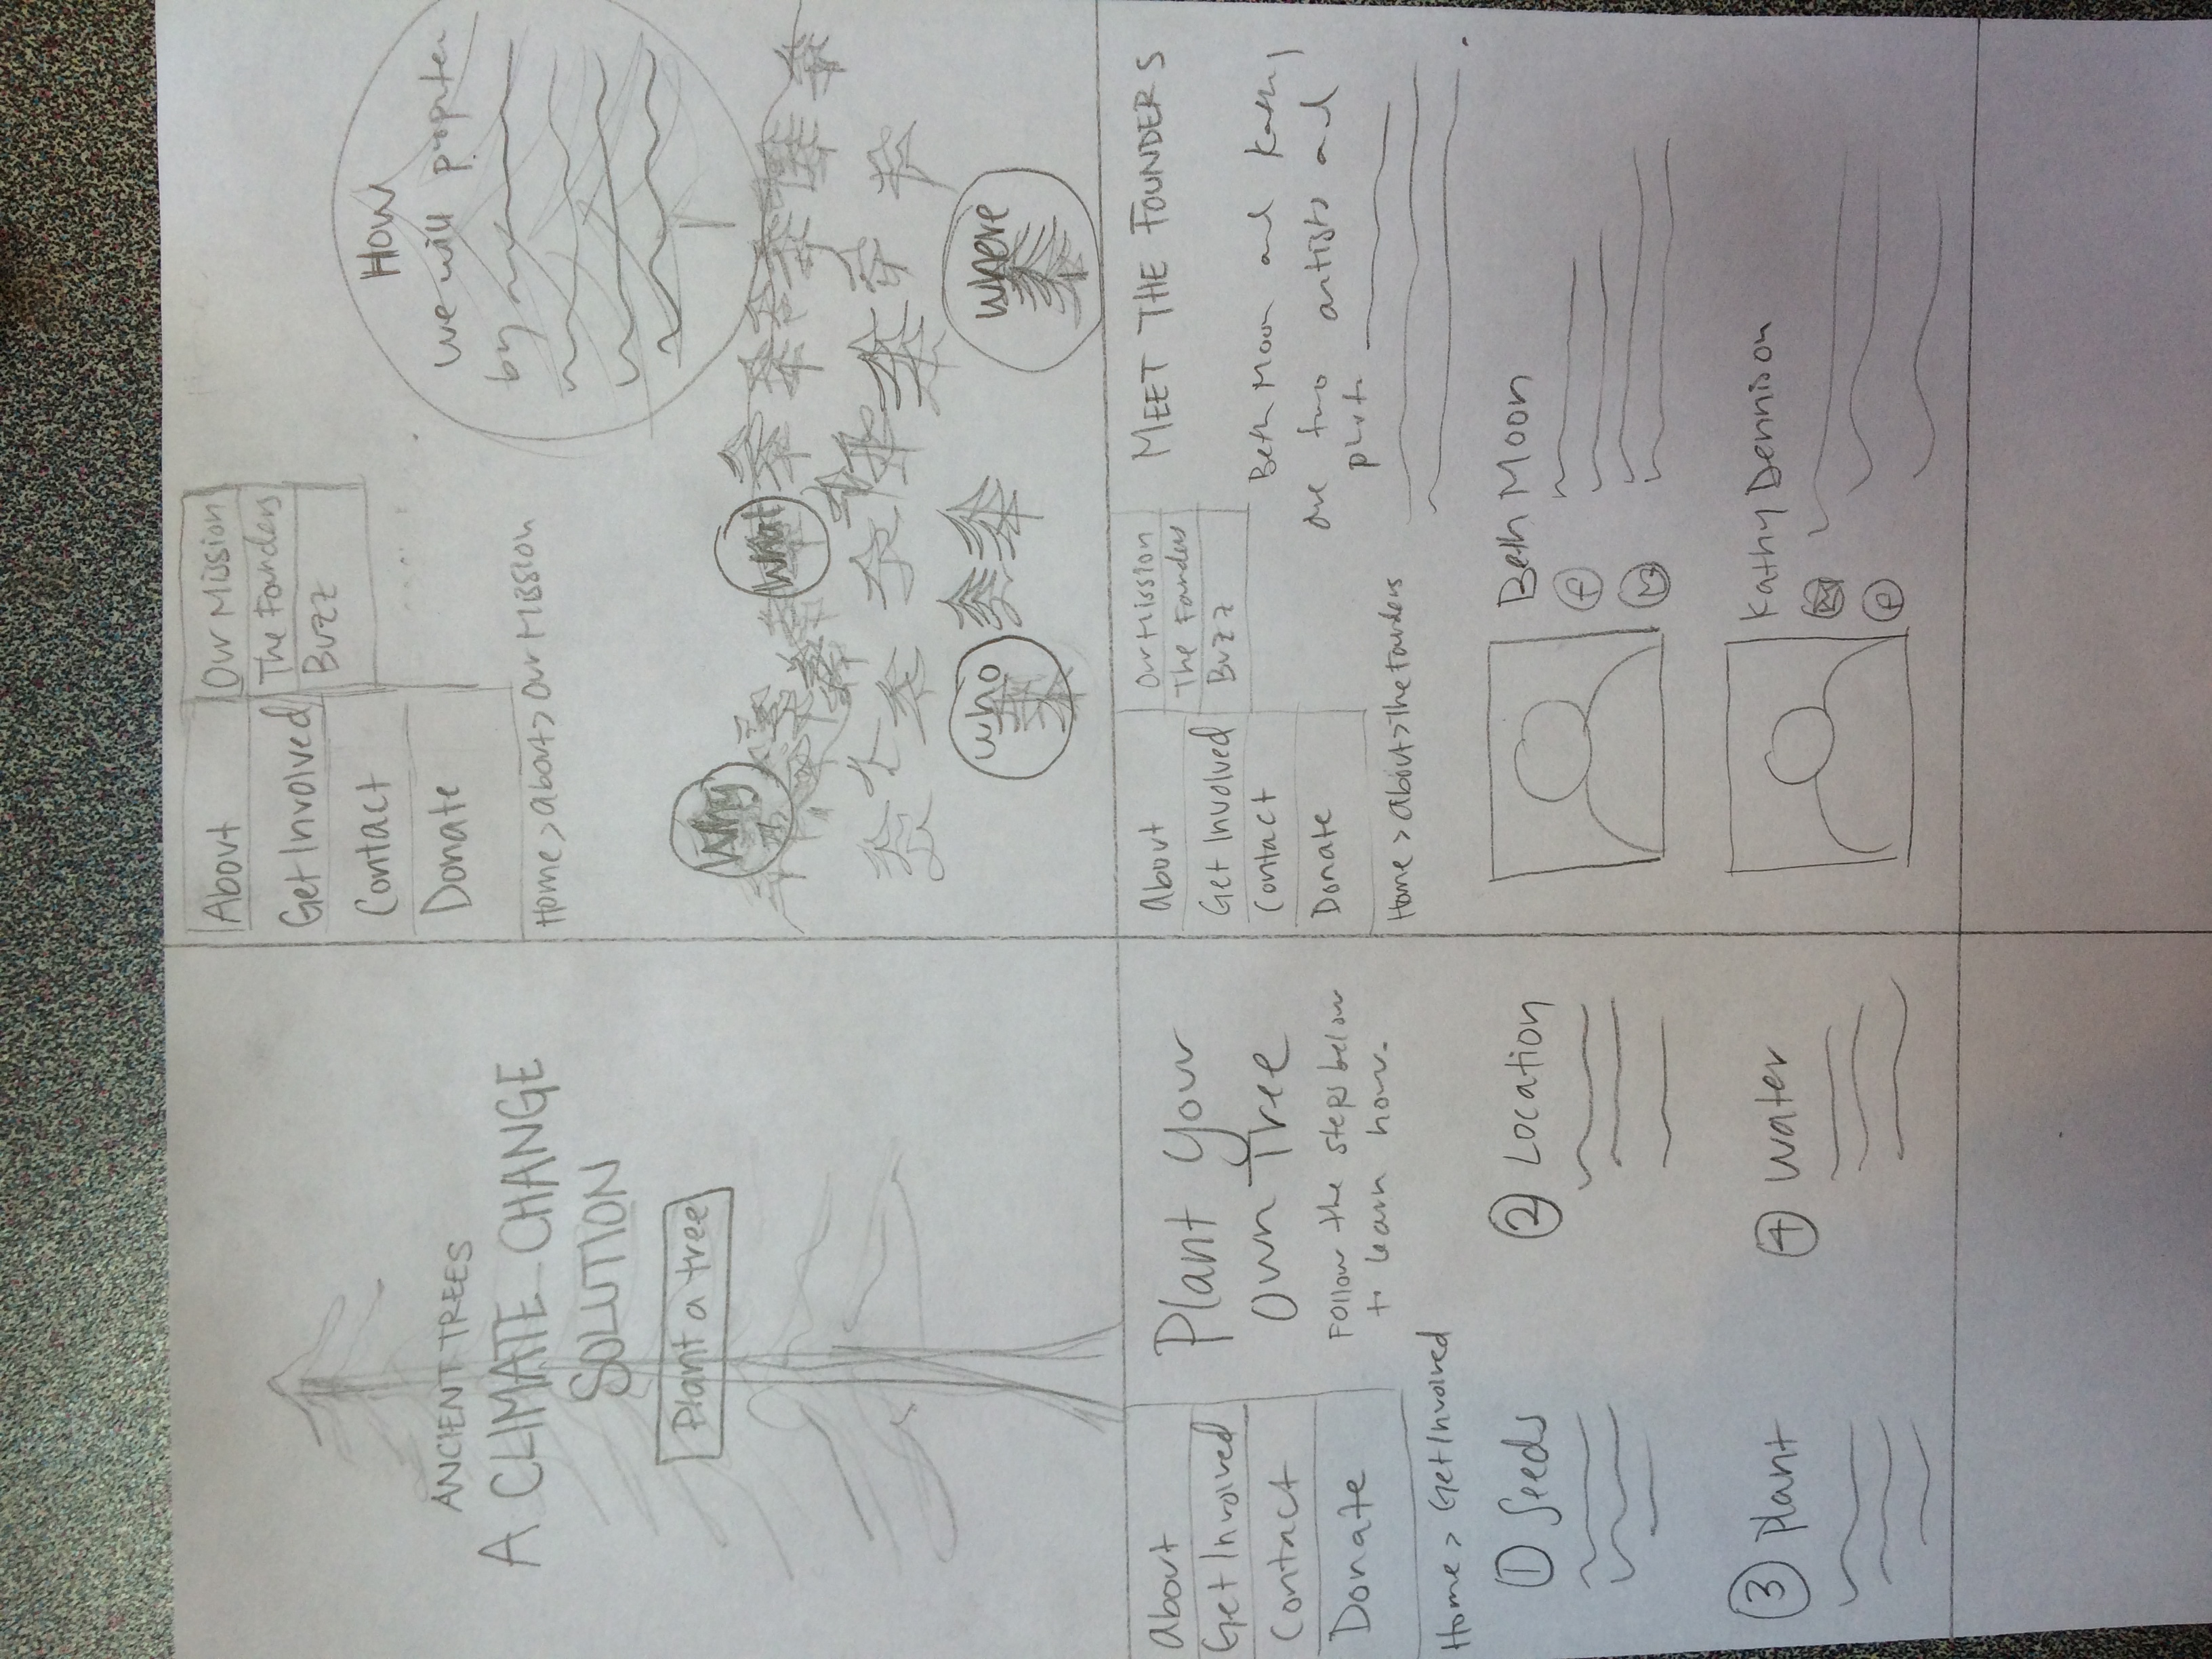 ANCIENT TREES
A CLIMATE CHANGE
SOLUTION
Plant a tree
About
Get Involved
Contact
Donate
Our Mission
The Founders
Buzz
Home > about > Our Mission
How
we will
by
Why
what
who
where
About
Get Involved
Contact
Donate
Home > Get Involved
Plant Your
Own Tree
Follow the steps below
to learn how.
1 Seeds
2 Location
3 Plant
4 Water
About
Get Involved
Contact
Donate
Our Mission
The Founders
Buzz
Home > About > The Founders
MEET THE FOUNDERS
Beth Moon and Kathy
are two artists and
Beth Moon
f
Kathy Dennison
f